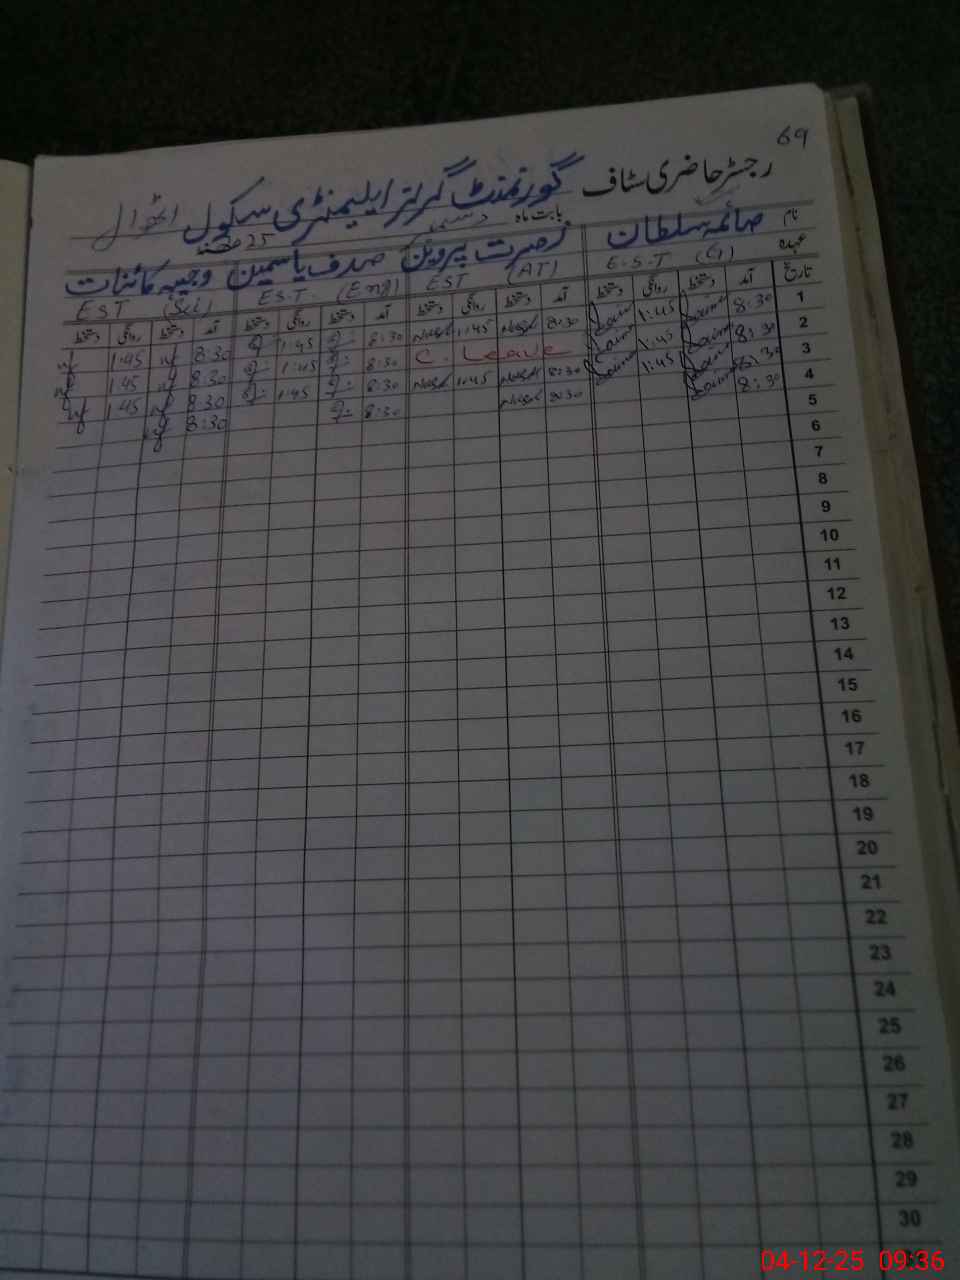 69
رجسٹر حاضری سٹاف گورنمنٹ گرلز ایلیمنٹری سکول
بابت ماہ دسمبر 25
نام صائمہ سلطان نصرت پروین صدف یاسمین وجیہہ کائنات
عہدہ E.S.T (G) EST (AT) EST (Eng) EST (Sci)
تاریخ آمد دستخط روانگی دستخط آمد دستخط روانگی دستخط آمد دستخط روانگی دستخط آمد دستخط روانگی دستخط
1 8:30 1:45 8:30 1:45 8:30 1:45 8:30 1:45
2 8:30 1:45 C. Leave 8:30 1:45 8:30 1:45
3 8:30 1:45 8:30 1:45 8:30 1:45 8:30 1:45
4 8:30 8:30 8:30 8:30
5
6
7
8
9
10
11
12
13
14
15
16
17
18
19
20
21
22
23
24
25
26
27
28
29
30
04-12-25 09:36